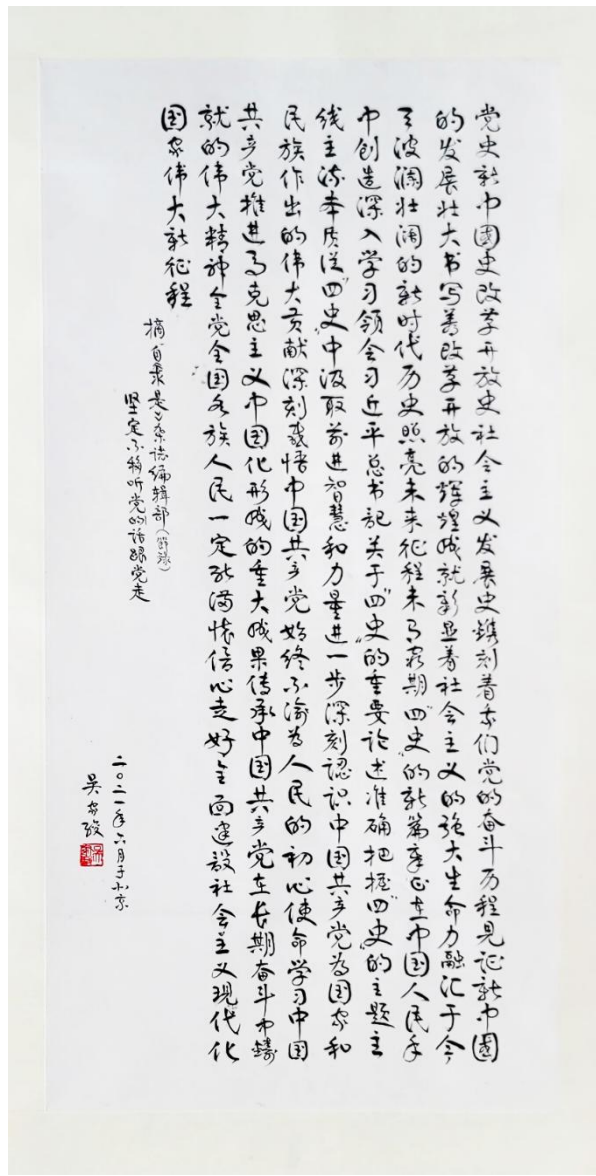 党史新中國史改革开放史社会主义发展史镌刻着我们党的奋斗历程见证新中國
的发展壮大书写着改革开放的辉煌成就彰显着社会主义的强大生命力融汇于今
天波澜壮阔的新时代历史照亮未来征程未有穷期“四史”的新篇章正在中国人民手
中创造深入学习领会习近平总书记关于“四史”的重要论述准确把握“四史”的主题主
线主流本质从“四史”中汲取前进智慧和力量进一步深刻认识中国共产党为国家和
民族作出的伟大贡献深刻感悟中国共产党始终不渝为人民的初心使命学习中国
共产党推进马克思主义中国化形成的重大成果传承中国共产党在长期奋斗中铸
就的伟大精神全党全国各族人民一定能满怀信心走好全面建设社会主义现代化
国家伟大新征程
摘自求是杂志编辑部(节录)
坚定不移听党的话跟党走
二〇二一年六月于北京
吴